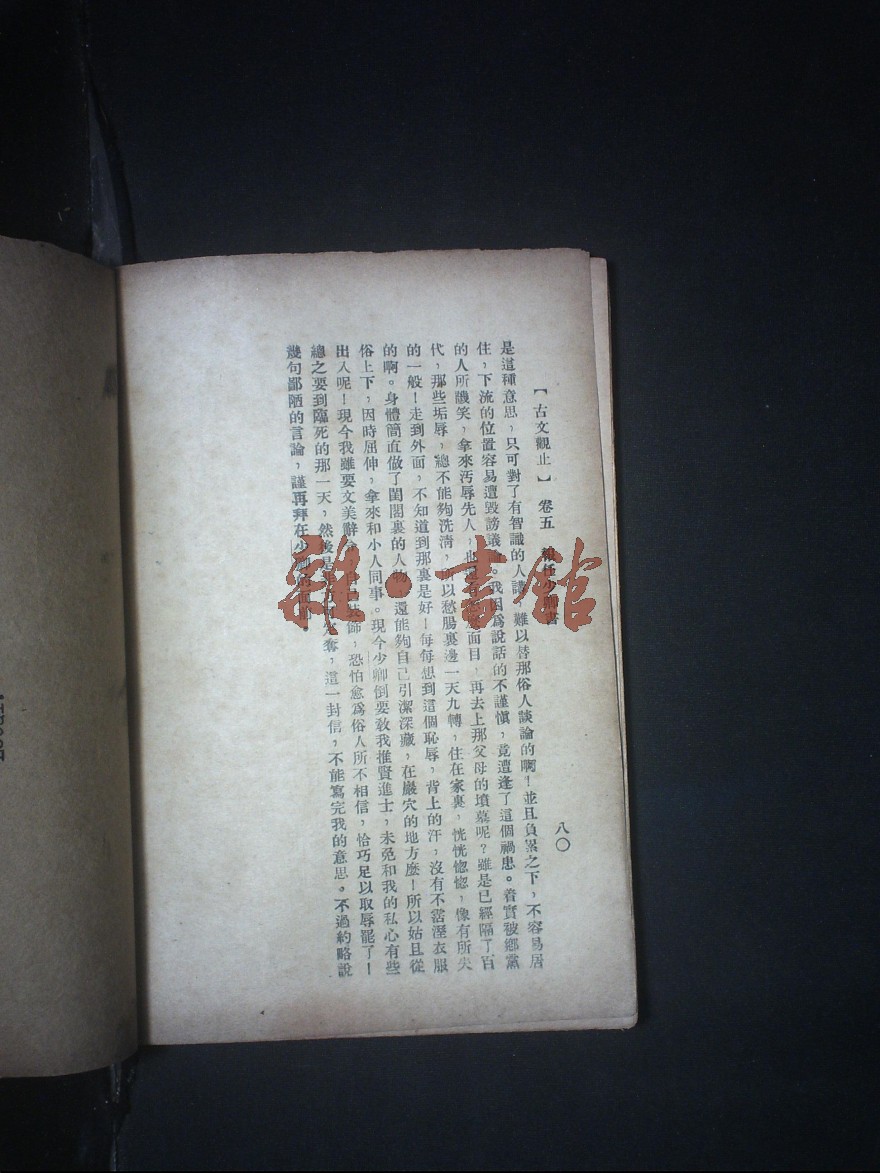 【古文觀止】 卷五 報任少卿書 八〇
是這種意思，只可對了有智識的人講，難以替那俗人談論的啊！並且負累之下，不容易居
住，下流的位置容易遭毀謗議論。我因爲說話的不謹愼，竟遭逢了這個禍患。着實被鄉黨
的人所譏笑，拿來汚辱先人，也 面目，再去上那父母的墳墓呢？雖是已經隔了百
代，那些垢辱，總不能夠洗淸，所以愁腸裏邊一天九轉，住在家裏，恍恍惚惚，像有所失
的一般！走到外面，不知道到那裏是好！每每想到這個恥辱，背上的汗，沒有不霑溼衣服
的啊。身體簡直做了閨閣裏的人物，還能夠自己引潔深藏，在巖穴的地方麽！所以姑且從
俗上下，因時屈伸，拿來和小人同事。現今少卿倒要敎我推賢進士，未免和我的私心有些
出入呢！現今我雖要文美辭 裝飾，恐怕愈爲俗人所不相信，恰巧足以取辱罷了！
總之要到臨死的那一天，然後是 奪，這一封信，不能寫完我的意思。不過約略說
幾句鄙陋的言論，謹再拜在少卿 面前。
雜·書館